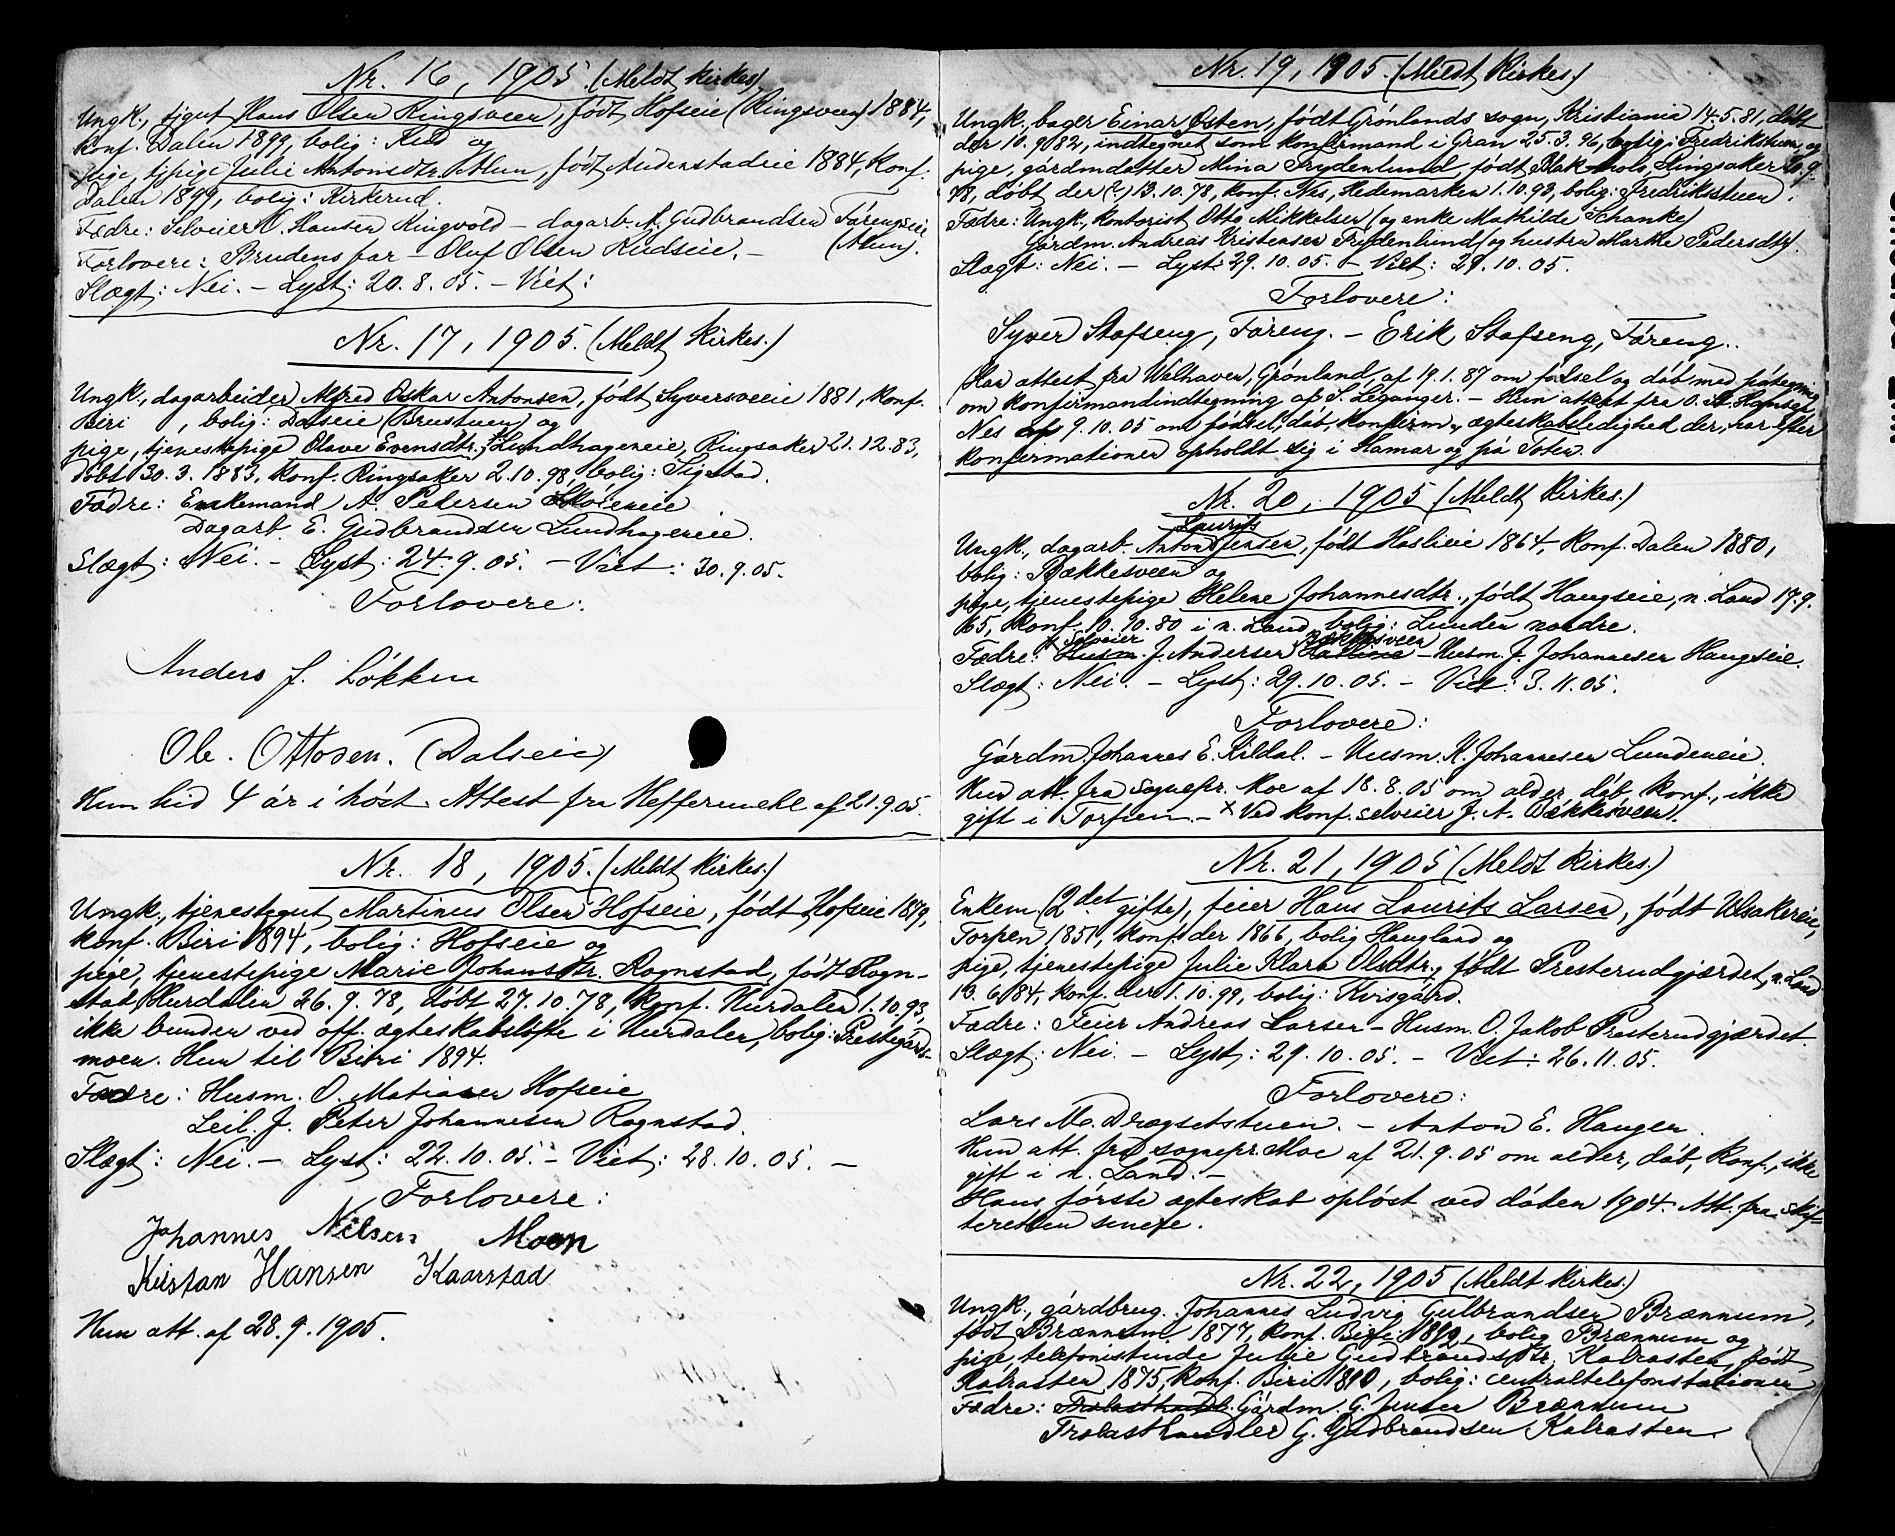 Nr. 16, 1905. (Meldt kirkes.)
Ungk., tjgut Hans Olsen Ringsveen, født Hofseie (Ringsveen) 1884,
konf. Dalen 1899, bolig: Rud og
pige, tjpige Julie Antonsdtr. Alun, født Audenstadeie 1884, konf.
Dalen 1899, bolig: Kirkerud.
Fædre: Selveier H. Hansen Ringvold – dagarb. A. Gudbrandsen Færengseie
Forlovere: Brudens far – Oluf Olsen Rudseie. – (Alun).
Slægt: Nei. – Lyst: 20.8.05. – Viet:
Nr. 17, 1905. (Meldt kirkes.)
Ungk., dagarbeider Alfred Oskar Antonsen, født Syversveeie 1881, konf.
Biri , bolig: Dalseie (Brustuen) og
pige, tjenestepige Olave Evensdtr., Lundhageneie, Ringsaker 21.12.83,
døbt 30.3.1883, konf. Ringsaker 2.10.98, bolig: Sigstad.
Fædre: Enkemand A. Petersen
Dagarb. E. Gudbrandsen Lundhageneie.
Slægt: Nei. – Lyst: 24.9.05. – Viet: 30.9.05.
Forlovere:
Anders J. Løkken
Ole. Ottosen. (Dalseie)
Hun hid 4 år i høst. Attest fra Heffermehl af 21.9.05.
Nr. 18, 1905. (Meldt kirkes.)
Ungk., tjenestegut Martinus Olsen Hofseie, født Hofseie 1879,
konf. Biri 1894, bolig: Hofseie og
pige, tjenestepige Marie Johansdtr. Rognstad, født Rogn-
stad, Hurdalen 26.9.78, døbt 27.10.78, konf. Hurdalen 1.10.93,
ikke bunden ved off. ægteskabsløfte i Hurdalen, bolig: Prestegårds-
moen. Hun til Biri 1894.
Fædre: Husm. O. Matiasen Hofseie
Leil. J. Peter Johannesen Rognstad.
Slægt: Nei. – Lyst: 22.10.05. – Viet: 28.10.05. –
Forlovere:
Johannes Nilsen Moen
Kristan Hansen Kaarstad
Hun att. af 28.9.1905.
Nr. 19, 1905. (Meldt kirkes.)
Ungk., bager Einar Østen, født Grønlands sogn, Kristiania 14.5.81, døbt
der 10.9.82, indtegnet som konfirmand i Gran 25.3.96, bolig: Fredrikstuen, og
pige, gårdmdatter Mina Frydenlund, født Ringsaker 10.9
78, døbt der (?) 13.10.78, konf. Nes, Hedemarken 1.10.93, bolig: Fredrikstuen.
Fædre: Ungk., kontorist Otto Mikkelsen (og enke Mathilde Schanke)
Gårdm. Andreas Kristensen Frydenlund (og hustru Marthe Pedersdtr).
Slægt: Nei. – Lyst: 29.10.05. – Viet: 29.10.05.
Forlovere:
Syver Stafseng, Færeng. – Erik Stafseng, Færeng.
Han attest fra Welhaven, Grønland, af 19.1.87 om fødsel og dåb med påtegning
om konfirmandindtegning af S. Leganger. – Hun attest fra O. Hansen,
Nes af 9.10.05 om fødsel, dåb, konfirm., ægteskabsledighed der, har efter
konfirmationen opholdt sig i Hamar og på Toten.
Nr. 20, 1905 (Meldt kirkes.)
Laurits
Ungk., dagarb. Anton Jensen, født Haslieie 1864, konf. Dalen 1880,
bolig: Bækkesveen og
pige, tjenestepige Helene Johannesdtr., født Haugseie, n. Land 17.9.
65, konf. 10.10.80 i n. Land, bolig: Lunden nordre.
x Selveier Bækkesveen
Fædre: Husm. J. Andersen Haslieie – Husm. J. Johannesen Haugseie.
Slægt: Nei. – Lyst: 29.10.05. – Viet: 3.11.05.
Forlovere:
Gårdm. Johannes E. Kildal. – Husm. K. Johannesen Lundeneie.
Hun att. fra sognepr. Moe af 18.8.05 om alder, dåb, konf., ikke
gift i Torpen. – x Ved konf. selveier J. A. Bækkesveen).
Nr. 21, 1905 (Meldt kirkes.)
Enkem. (2det gifte), feier Hans Laurits Larsen, født Ulsakereie,
Torpen 1851, konf. der 1866, bolig Haugland og
pige, tjenestepige Julie Klara Olsdtr., født Presterudgjærdet, n. Land
13.6.84, konf. der 1.10.99, bolig: Kvisgård.
Fædre: Feier Andreas Larsen – Husm. O. Jakob Presterudgjærdet.
Slægt: Nei. – Lyst: 29.10.05. – Viet: 26.11.05.
Forlovere:
Lars M. Drægsetstuen. – Anton E. Haugen.
Hun att. fra sognepr. Moe af 21.9.05 om alder, dåb, konf., ikke
gift i n. Land. –
Hans første ægteskab opløst ved døden 1904. Att. fra skif-
teretten senere.
Nr. 22, 1905 (Meldt kirkes.)
Ungk., gårdbrug. Johannes Ludvig Gulbrandsen Brænnum,
født Brænnum 1877, konf. Biri 1892, bolig Brænnum og
pige, telefonistinde Julie Gudbrandsdtr. Kalrasten, født
Kalrasten 1875, konf. Biri 1890, bolig: centraltelefonstationen
Fædre: Gårdm. G. Jensen Brænnum
Trælasthandler G. Gudbrandsen Kalrasten